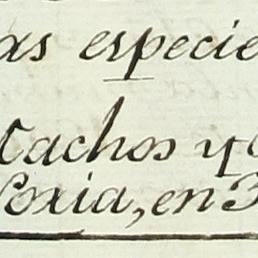 as especie
tachos y
Loxia, en